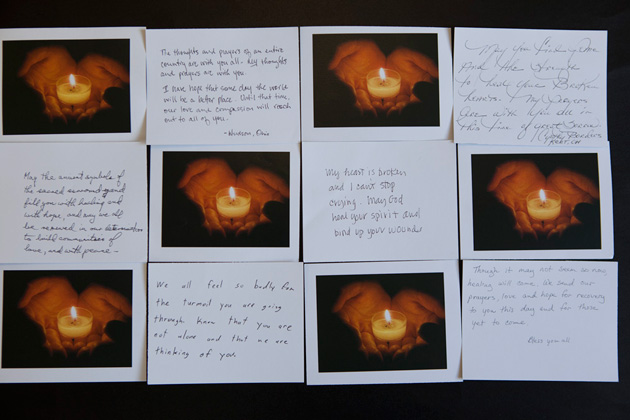 The thoughts and prayers of an entire
country are with you all. My thoughts
and prayers are with you.
I have hope that some day the world
will be a better place. Until that time,
our love and compassion will reach
out to all of you.
- Hudson, Ohio
May you find peace
and the strength
to heal your Broken
hearts. My Prayers
are with you all in
this time of great
May the ancient symbols of
the sacred surround
fill you with healing and
with hope, and may we all
be renewed in our
to build communities of
love, and with peace -
My heart is broken
and I can't stop
crying. May God
heal your spirit and
bind up your wounds
We all feel so badly for
the turmoil you are going
through know that you are
not alone and that we are
thinking of you.
Though it may not seem so now,
healing will come. We send our
prayers, love and hope for recovery
to you this day and for those
yet to come.
Bless you all.